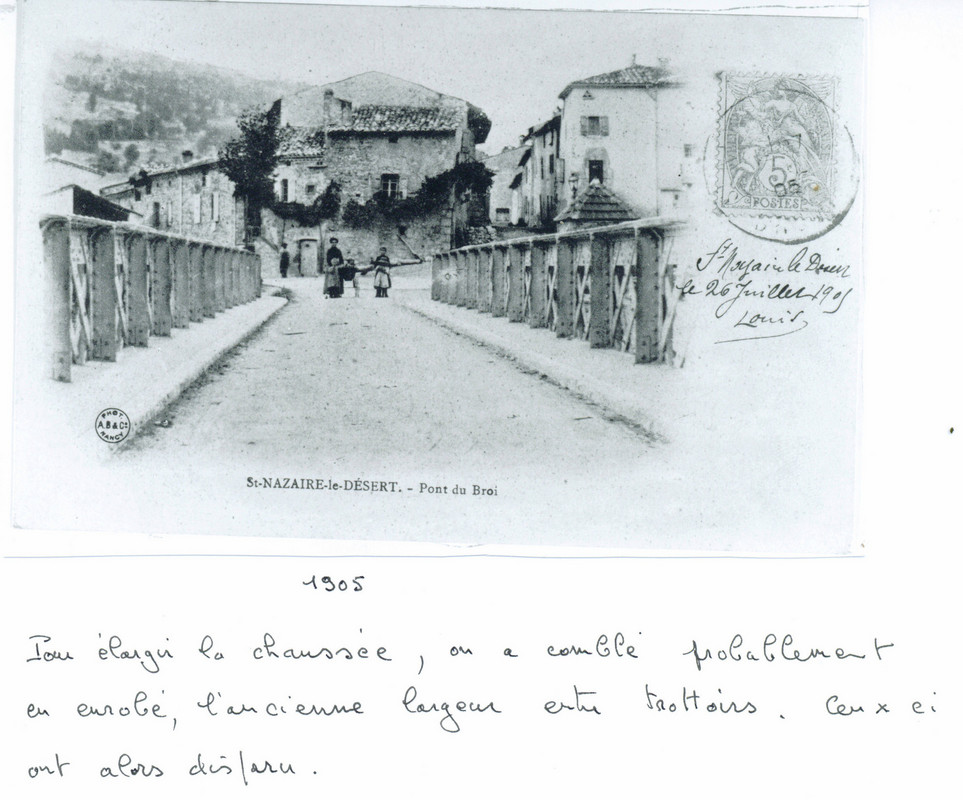 5
POSTES
St Nazaire le Désert
le 26 Juillet 1905
Louis
PHOT.
A.B & Cie
NANCY
St-NAZAIRE-le-DÉSERT. - Pont du Broi
1905
Pour élargir la chaussée, on a comblé probablement
en enrobé, l'ancienne largeur entre trottoirs. Ceux ci
ont alors disparu.